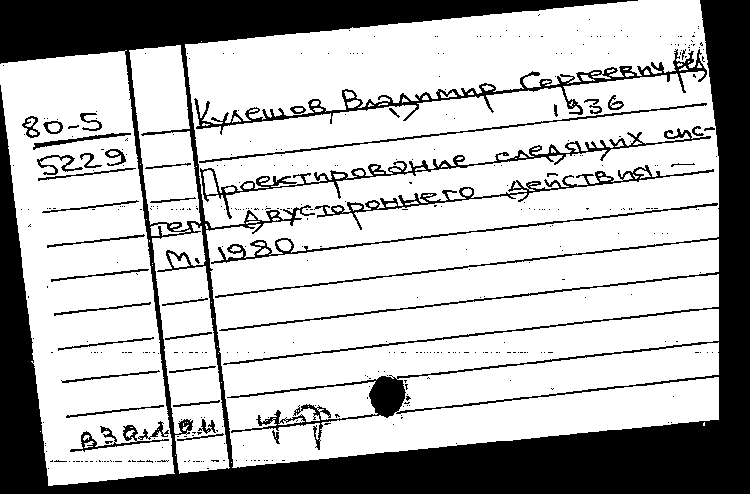 80-5
5229
Кулешов, Владимир Сергеевич, ред.
1936
Проектирование следящих сис-
тем двустороннего действия. –
М. 1980.
взамен